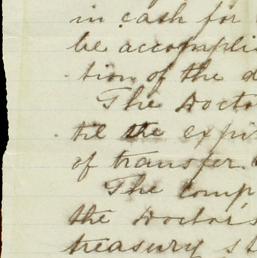 in cash for
be accompli
tion of the d
The Docto
til the expi
of transfer.
The comp
the Doctor's
treasury st